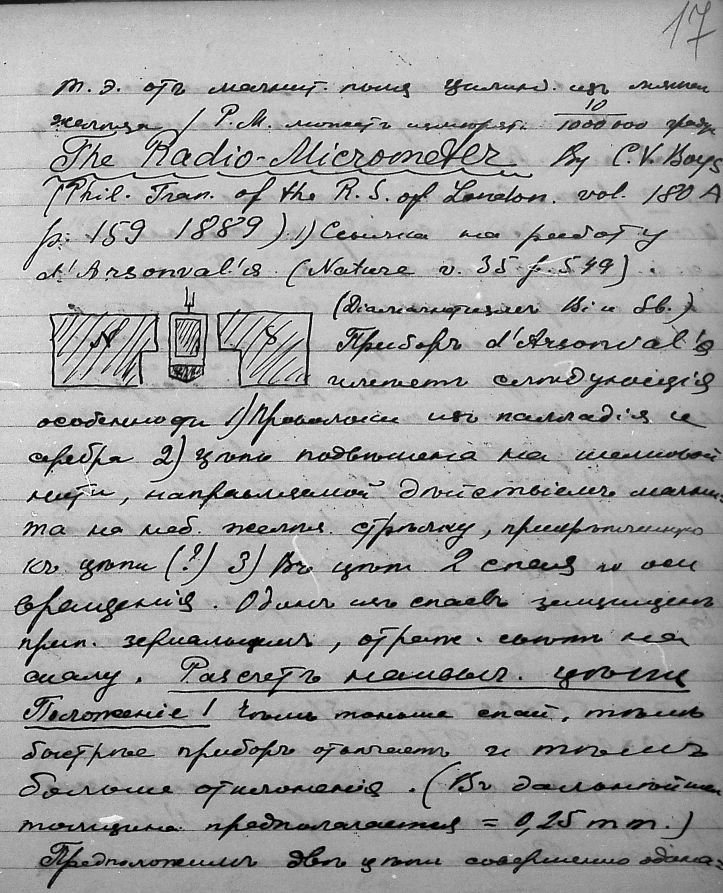 17
т. э. отъ магнит. поля цилинд. изъ мягкаго
желѣза / Р.М. можетъ измѣрять 10/1000000 град.
The Radio-Micrometer By C.V. Boys
(Phil. Tran. of the R. S. of London. vol. 180 A
p. 159 1889) 1) Ссылка на работу
d'Arsonval'я (Nature v. 35 p. 549).
(Діамагнетизмъ Bi и Sb.)
N S
Приборъ d'Arsonval'я
имѣетъ слѣдующія
особенности 1) Проволоки изъ палладія и
серебра 2) цѣпь подвѣшена на шелковой
нити, направляемой дѣйствіемъ магни-
та на неб. желѣзн. стрѣлку, прикрѣпленную
къ цѣпи (?) 3) Въ цѣпи 2 спая по оси
вращенія. Одинъ изъ спаевъ защищенъ
прик. зеркальцемъ, отраж. свѣтъ на
шкалу. Разсчетъ наивыг. цѣпи
Положеніе 1 Чѣмъ тоньше спай, тѣмъ
быстрѣе приборъ отвѣчаетъ и тѣмъ
больше отклоненія. (Въ дальнѣйшем
толщина предполагается = 0,25 mm.)
Предположимъ двѣ цѣпи совершенно одина-